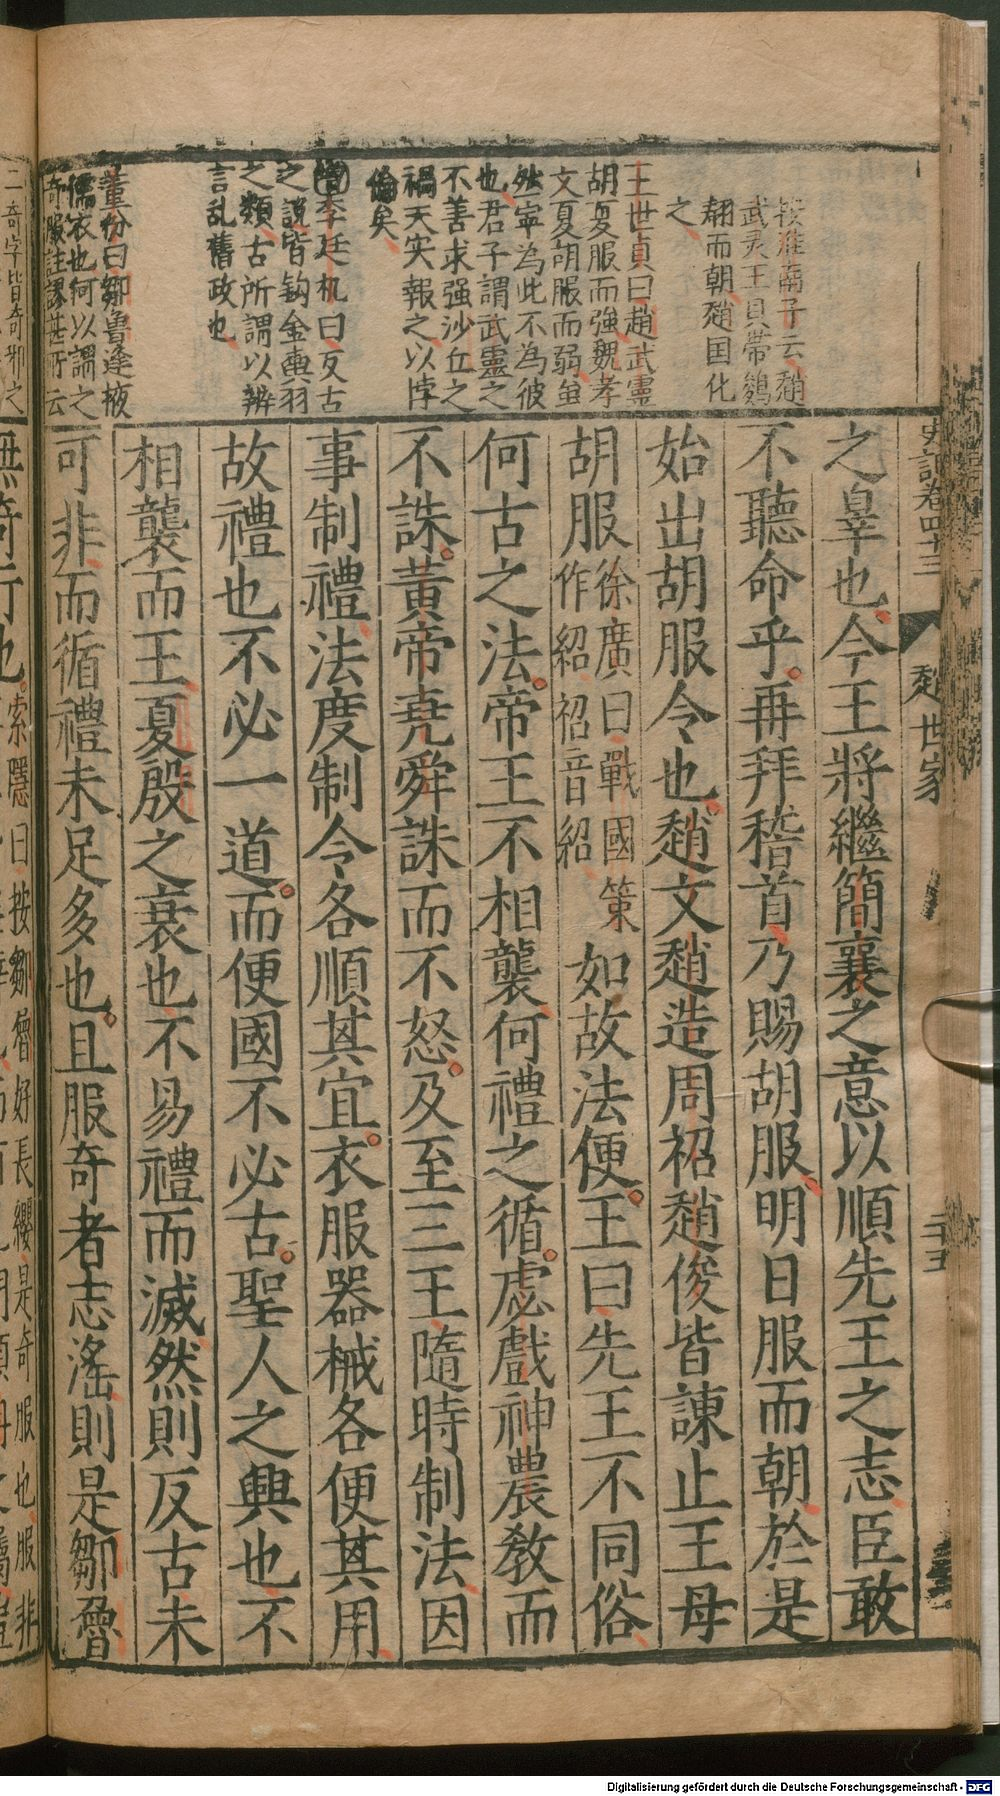 史記卷四十三
趙世家
二十五
按淮南子云趙
武灵王貝帶鵕
翻而朝趙国化
之
王世貞曰趙武靈
胡夏服而強魏孝
文夏胡服而弱虽
然寧為此不為彼
也君子謂武靈之
不善求强沙丘之
禍天实報之以悖
倫矣
李廷机曰反古
之說皆鈎金輿羽
之類古所謂以辨
言乱舊政也
董份曰鄒魯逢掖
儒衣也何以謂之
奇服註謬甚所云
之辠也今王將繼簡襄之意以順先王之志臣敢
不聽命乎再拜稽首乃賜胡服明日服而朝於是
始出胡服令也趙文趙造周袑趙俊皆諫止王母
胡服徐廣曰戰國策
作紹袑音紹
如故法便王曰先王不同俗
何古之法帝王不相襲何禮之循虙戲神農教而
不誅黃帝堯舜誅而不怒及至三王隨時制法因
事制禮法度制令各順其宜衣服器械各便其用
故禮也不必一道而便國不必古聖人之興也不
相襲而王夏殷之衰也不易禮而滅然則反古未
可非而循禮未足多也且服奇者志滛則是鄒魯
二奇字皆奇邪之
無奇行也
索隱曰按鄒魯好長纓是奇服也服非
Digitalisierung gefördert durch die Deutsche Forschungsgemeinschaft - DFG